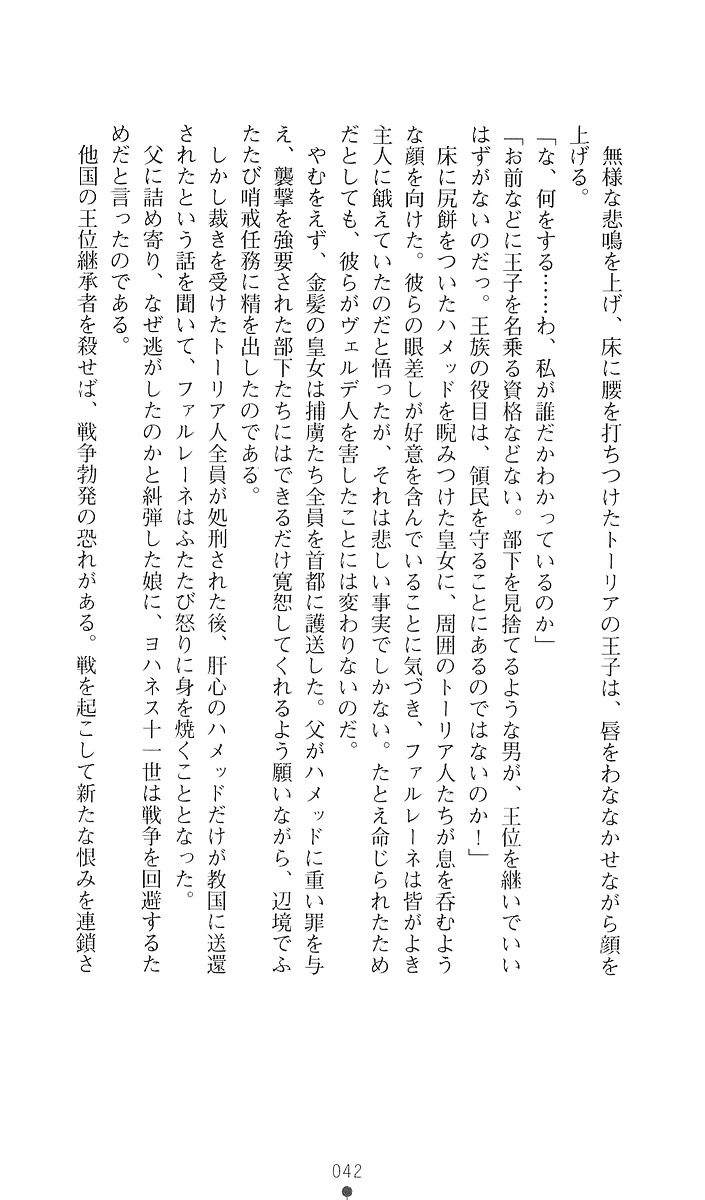 無様な悲鳴を上げ、床に腰を打ちつけたトーリアの王子は、唇をわななかせながら顔を
上げる。
「な、何をする……わ、私が誰だかわかっているのか」
「お前などに王子を名乗る資格などない。部下を見捨てるような男が、王位を継いでいい
はずがないのだっ。王族の役目は、領民を守ることにあるのではないのか！」
　床に尻餅をついたハメッドを睨みつけた皇女に、周囲のトーリア人たちが息を呑むよう
な顔を向けた。彼らの眼差しが好意を含んでいることに気づき、ファルレーネは皆がよき
主人に餓えていたのだと悟ったが、それは悲しい事実でしかない。たとえ命じられたため
だとしても、彼らがヴェルデ人を害したことには変わりないのだ。
　やむをえず、金髪の皇女は捕虜たち全員を首都に護送した。父がハメッドに重い罪を与
え、襲撃を強要された部下たちにはできるだけ寛恕してくれるよう願いながら、辺境でふ
たたび哨戒任務に精を出したのである。
　しかし裁きを受けたトーリア人全員が処刑された後、肝心のハメッドだけが教国に送還
されたという話を聞いて、ファルレーネはふたたび怒りに身を焼くこととなった。
　父に詰め寄り、なぜ逃がしたのかと糾弾した娘に、ヨハネス十一世は戦争を回避するた
めだと言ったのである。
　他国の王位継承者を殺せば、戦争勃発の恐れがある。戦を起こして新たな恨みを連鎖さ
042